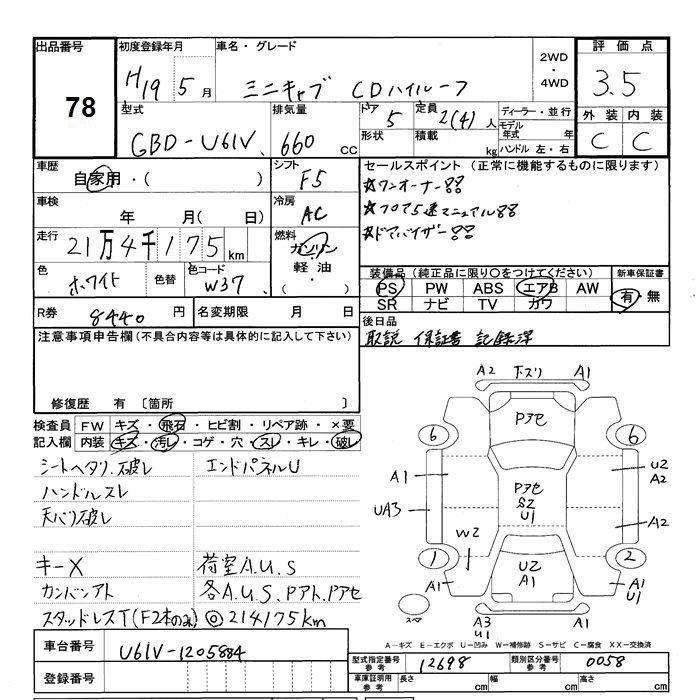 出品番号 初度登録年月 車名・グレード 2WD ・ 4WD 評価点
78 H19 5月 ミニキャブ CDハイルーフ 3.5
型式 排気量 ドア 定員 ディーラー・並行 外装 内装
GBD-U61V 660 CC 5 2(4)人 モデル年式 年 C C
形状 積載 kg ハンドル 左・右
車歴 シフト セールスポイント (正常に機能するものに限ります)
自家用・( ) F5 ☆ワンオーナー!!
車検 冷房 ☆フロア5速マニュアル!!
年 月( 日) AC ☆ドアバイザー!!
走行 21万4千175km 燃料 ガソリン・軽油・( )
色 色替 色コード 装備品(純正品に限り○をつけてください) 新車保証書
ホワイト W37 PS PW ABS エアB AW 有・無
SR ナビ TV カワ
R券 8440円 名変期限 月 日 後日品
注意事項申告欄(不具合内容等は具体的に記入して下さい) 取説 保証書 記録簿
修復歴 有 〔箇所 〕
検査員 FW キズ・飛石・ヒビ割・リペア跡・×要
記入欄 内装 キズ・汚レ・コゲ・穴・スレ・キレ・破レ
シートヘタリ.破レ エンドパネルU
ハンドルスレ
天バリ破レ
キーX 荷室A.U.S
カンバンアト 各A.U.S.Pアト.Pアセ
スタッドレスT(F2本のみ) ◎214175km
A2 下スリ A1
Pアセ
6 6
A1 U2 A2
Pアセ S2 U1
UA3 A2
W2
1 2
U2 A1
A1 A1 U1
スペア
A3 U1
A-キズ E-エクボ U-凹み W-補修跡 S-サビ C-腐食 XX-交換済
車台番号 U61V-1205884
型式指定番号 参考 12698 類別区分番号 参考 0058
登録番号
車庫証明用 参考 長さ cm 幅 cm 高さ cm